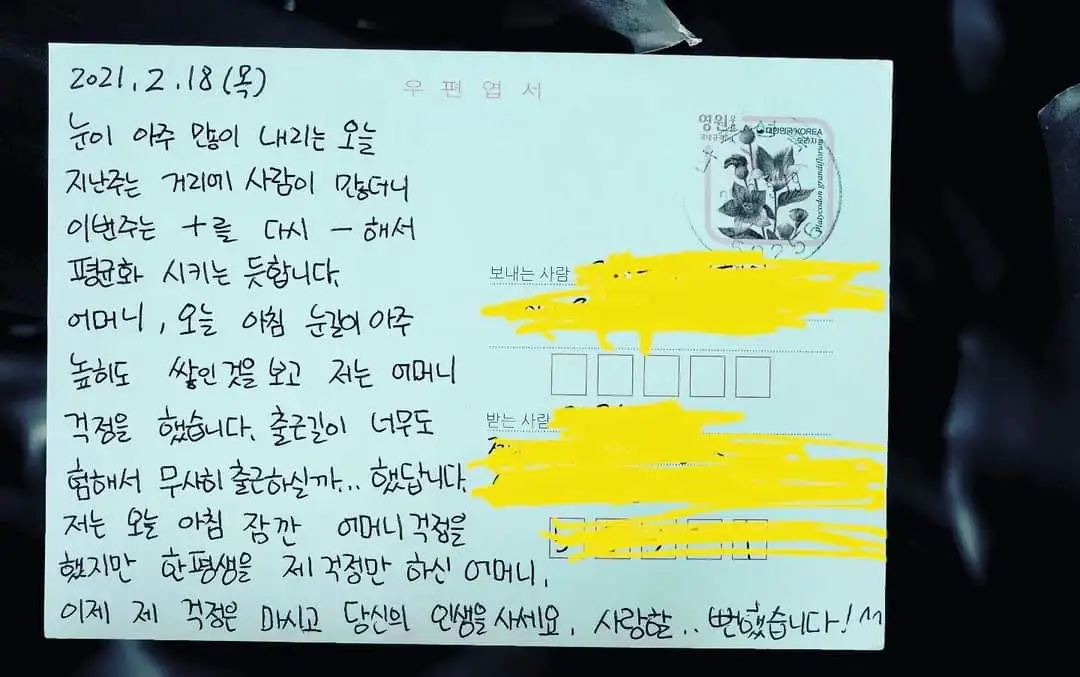 2021. 2. 18 (목)
우편엽서
눈이 아주 많이 내리는 오늘
지난주는 거리에 사람이 많더니
이번주는 +를 다시 - 해서
평균화 시키는 듯합니다.
어머니, 오늘 아침 눈길이 아주
높히도 쌓인것을 보고 저는 어머니
걱정을 했습니다. 출근길이 너무도
험해서 무사히 출근하실까... 했답니다.
저는 오늘 아침 잠깐 어머니 걱정을
했지만 한평생을 제 걱정만 하신 어머니,
이제 제 걱정은 마시고 당신의 인생을 사세요. 사랑할.. 뻔했습니다!
영원우표
대한민국 KOREA
도라지
Platycodon grandiflorum
보내는 사람
받는 사람